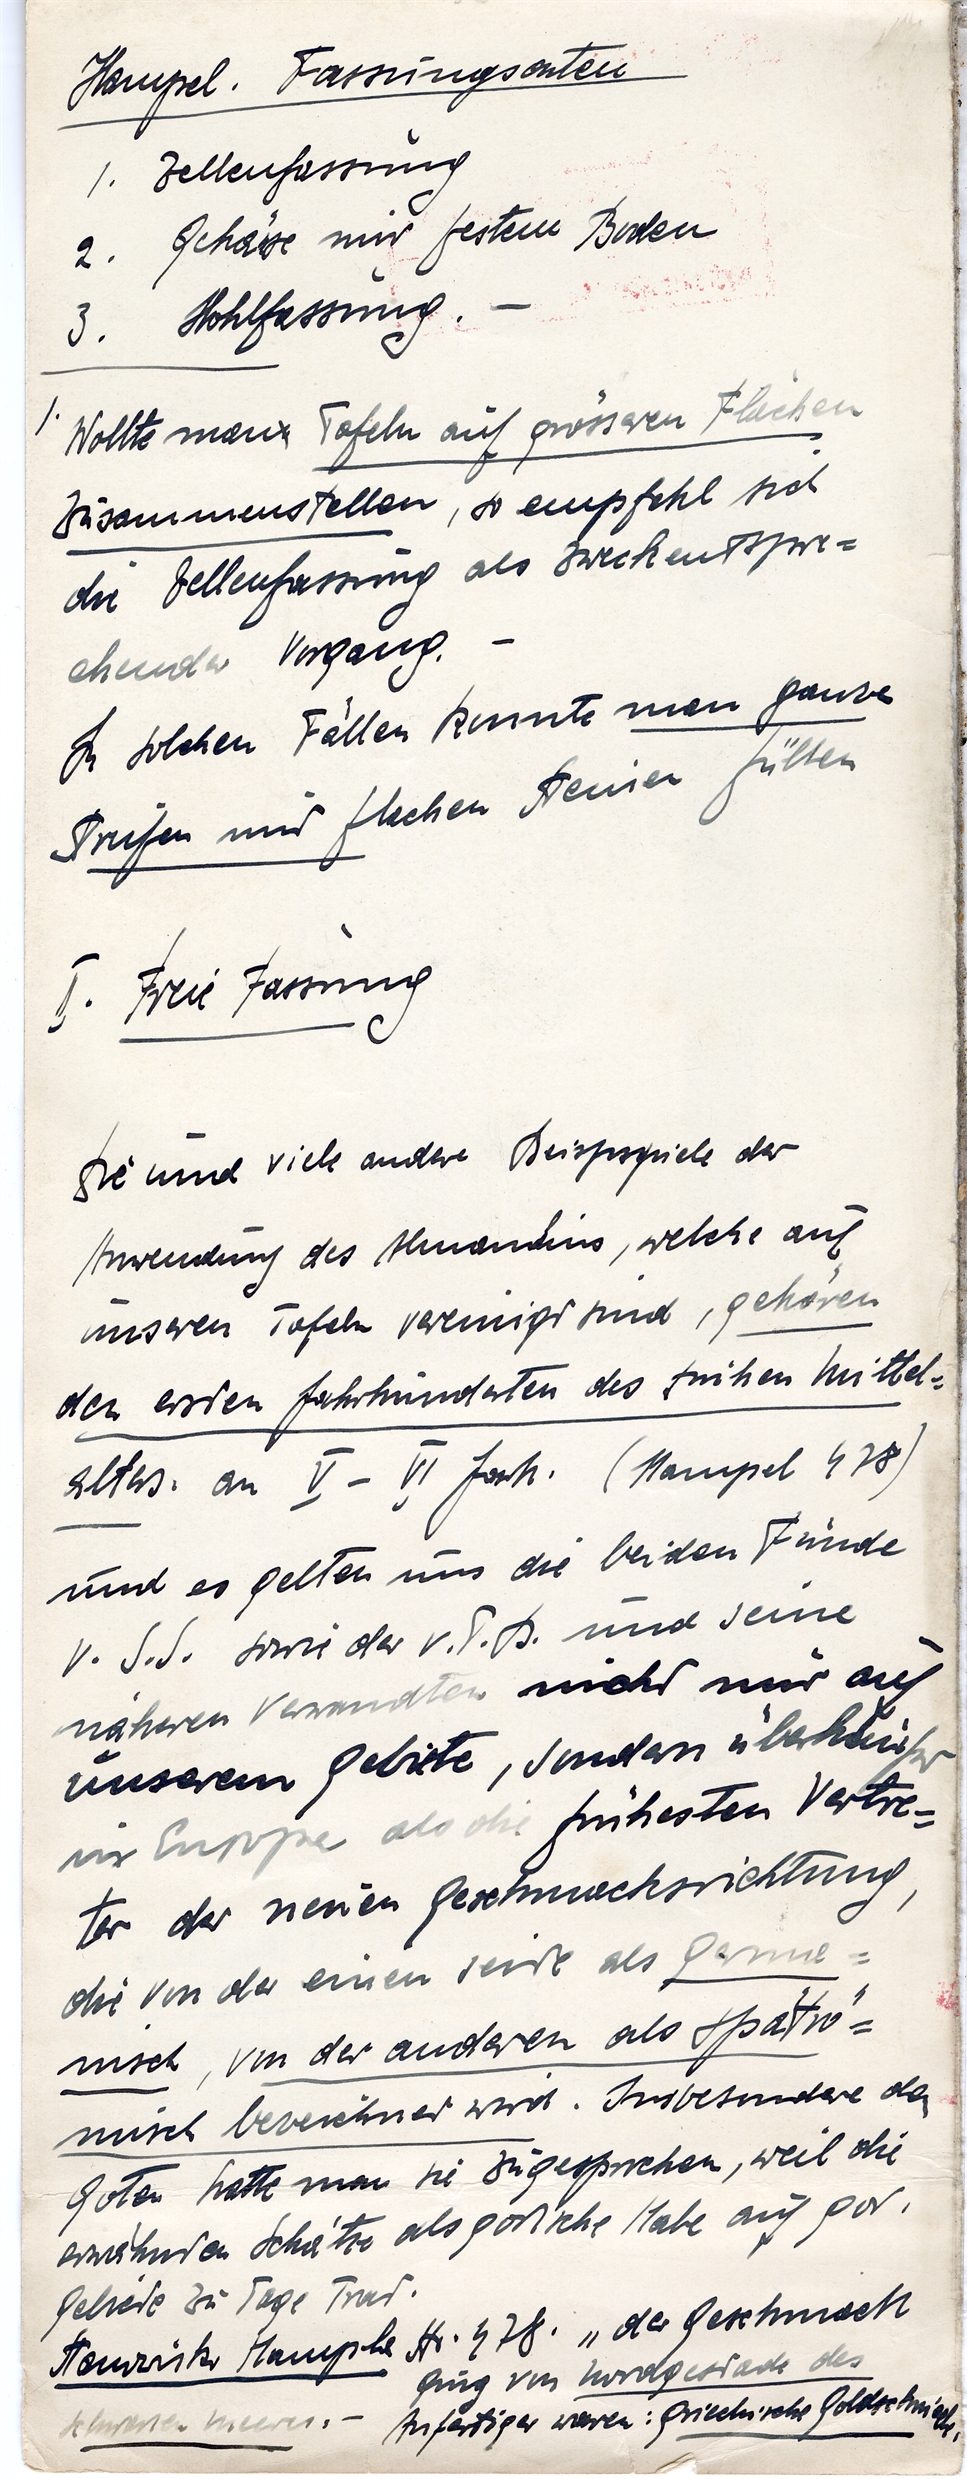 Hampel. Fassungsarten
1. Zellenfassung
2. Gehäuse mit festem Boden
3. Hohlfassung. –
1. Wollte man Tafeln auf grösseren Flächen
zusammenstellen, so empfehl sich
die Zellenfassung als zweckentspre=
chender Vorgang. –
In solchen Fällen konnte man ganze
Streifen mit flachen Steinen füllen
II. Freie Fassung
Die und viele andere Beispspiele der
Anwendung des Almandins, welche auf
unseren Tafeln vereinigt sind, gehören
den ersten Jahrhunderten des frühen Mittel=
alters. an V – VI Jarh. (Hampel 478)
und es gelten uns die beiden Funde
v. S.S. sowie der v. P. und seine
näheren Verwandten nicht nur auf
unserem Gebiete, sondern überhaupt
in Europa als die frühesten Vertre=
ter der neuen Geschmacksrichtung,
die von der einen Seite als germa=
nisch, von der anderen als spätrö=
misch bezeichnet wird. Insbesondere den
Goten hatte man sie zugesprochen, weil die
erwähnten Schätze als gotische Habe auf got.
Gebiete zu Tage trat.
Hampel 478. „der Geschmack
ging von Nordgestade des
schwarzen Meeres. –
Anfertiger waren: griechische Goldschmiede.